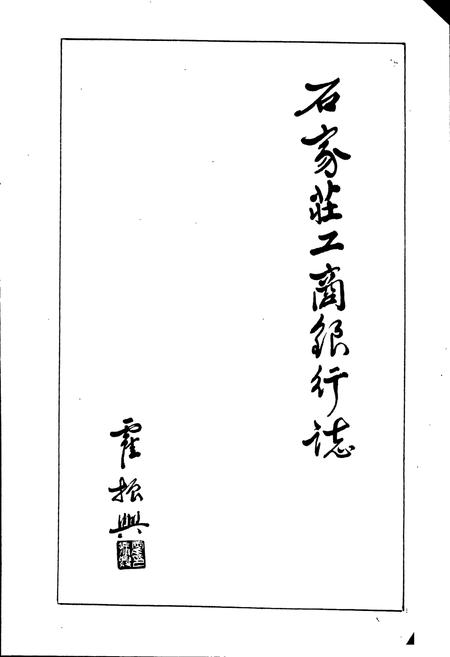 石家莊工商銀行誌
霍振興